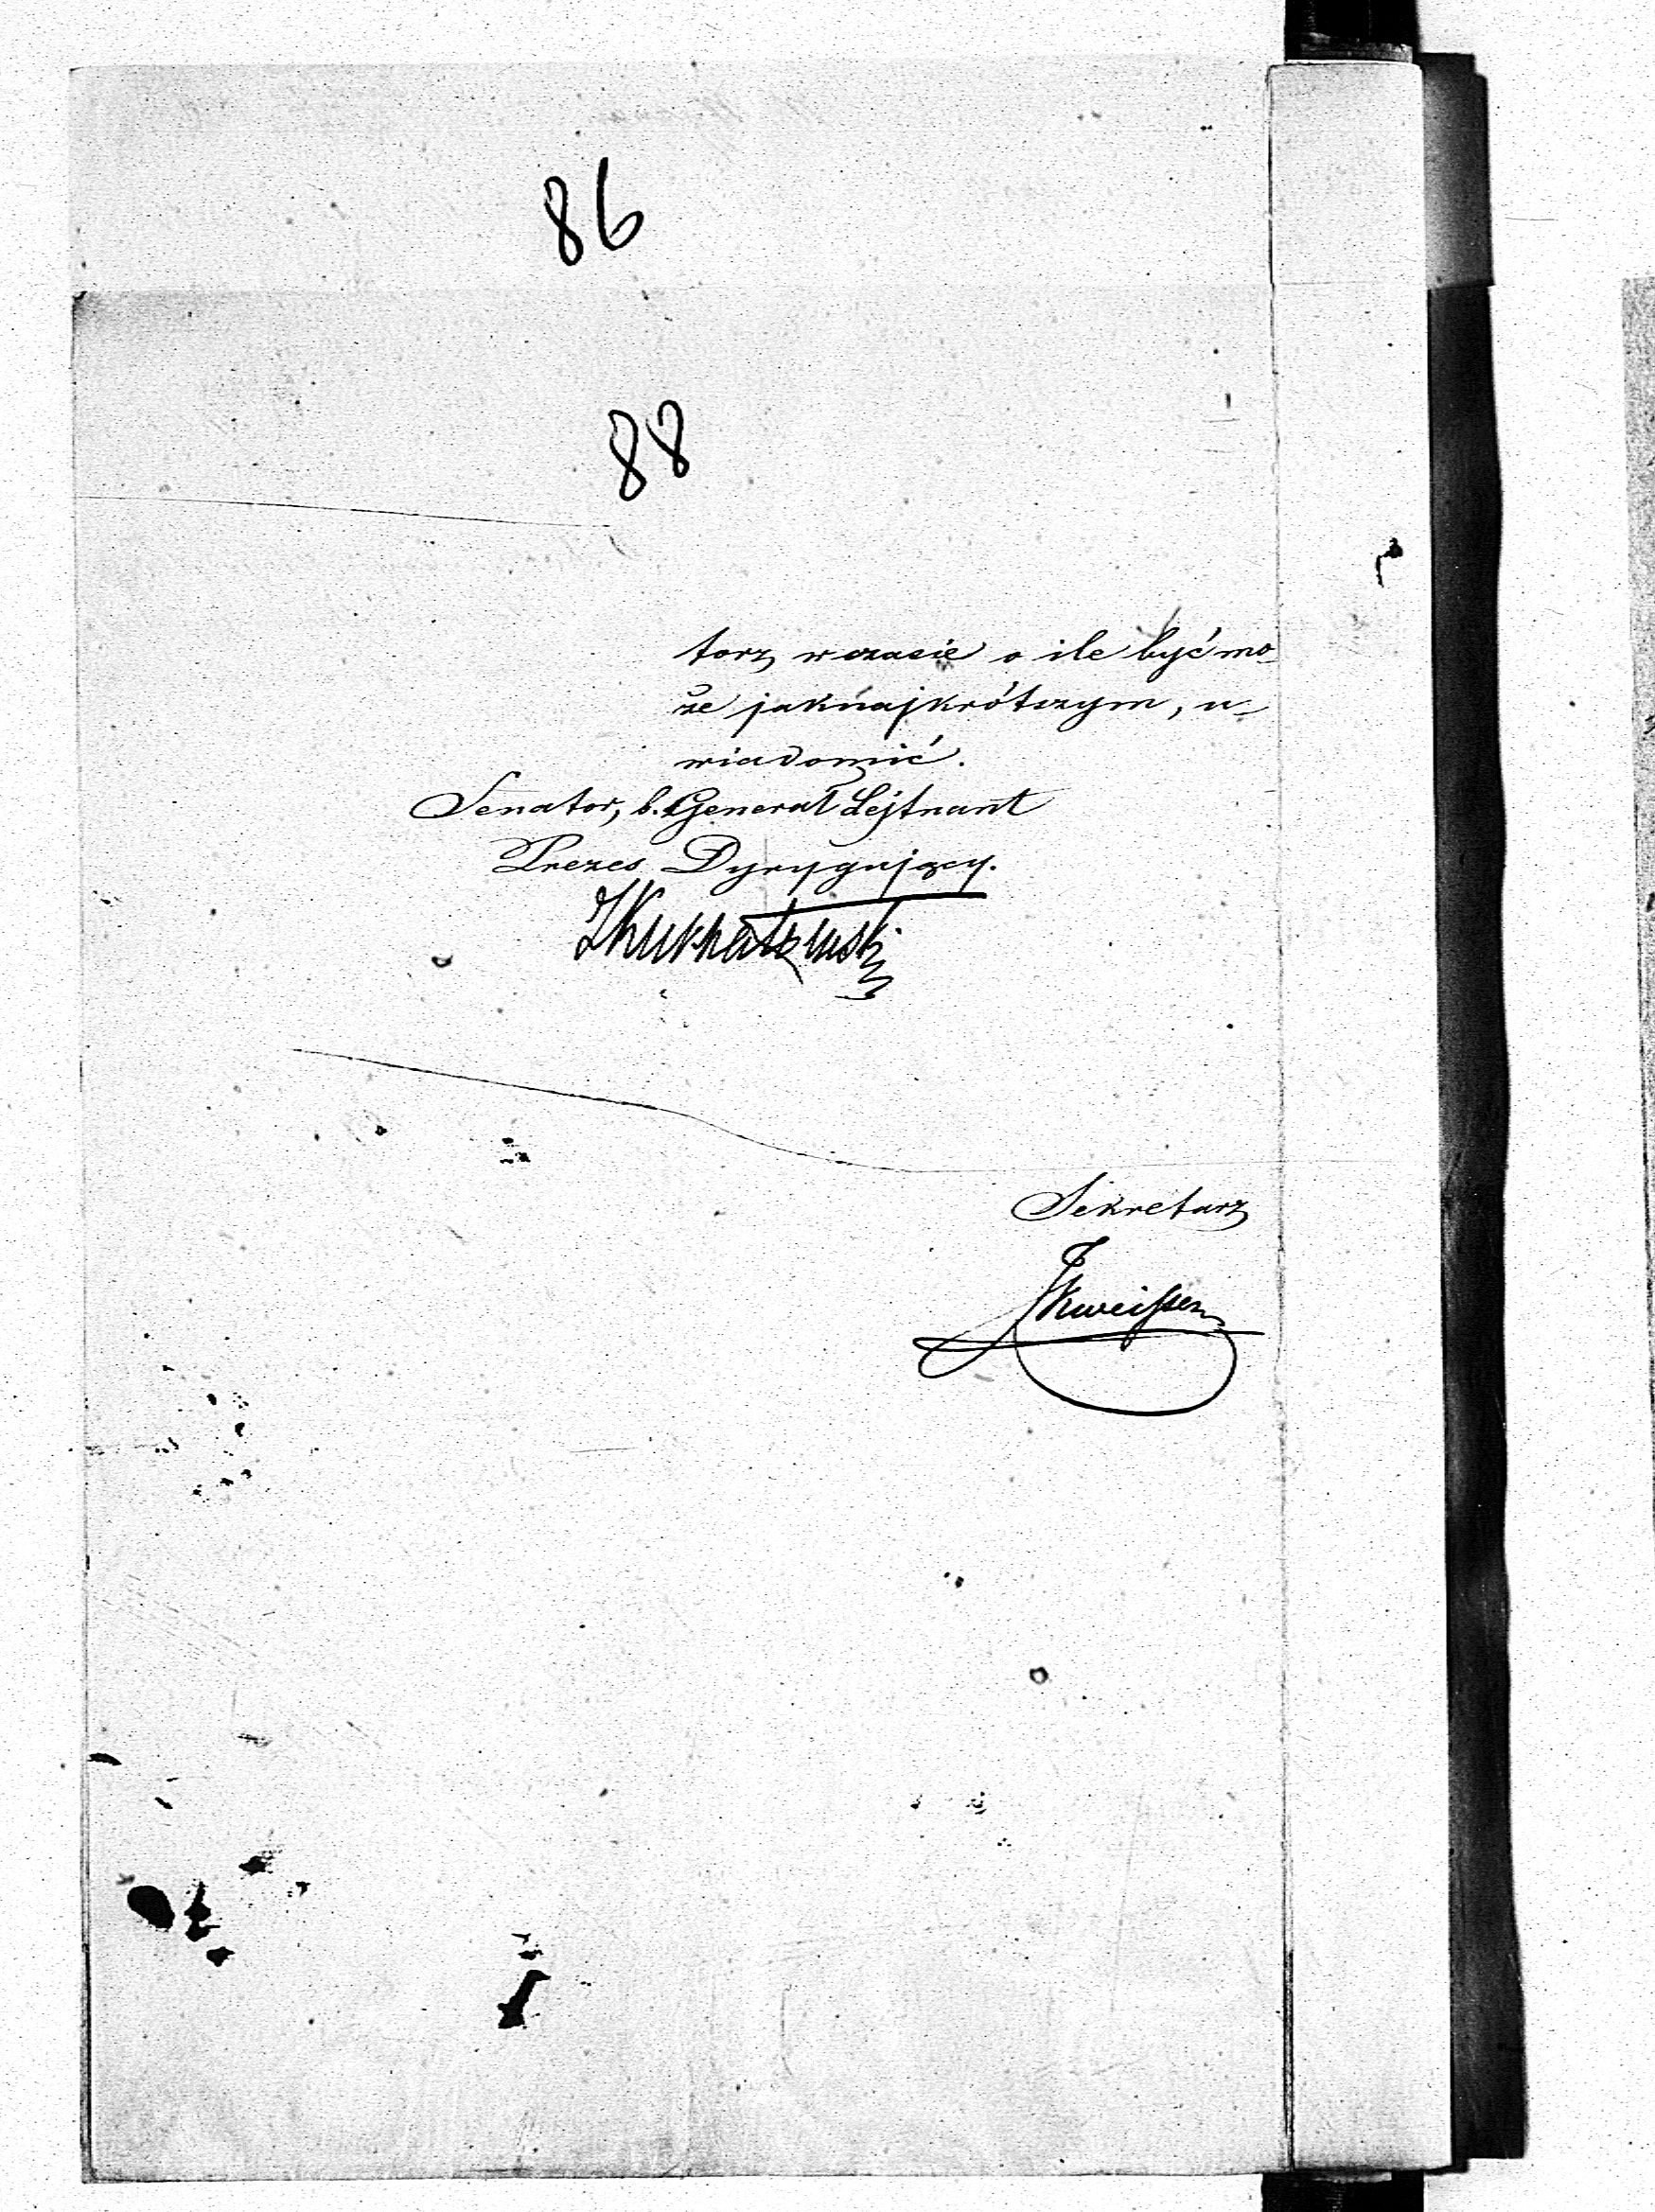 86
88
torz w czasie o ile być mo-
że jaknajkrótszym, u-
wiadomić.
Senator, b. Generał Lejtnant
Prezes Dyrygujący.
Sekretarz